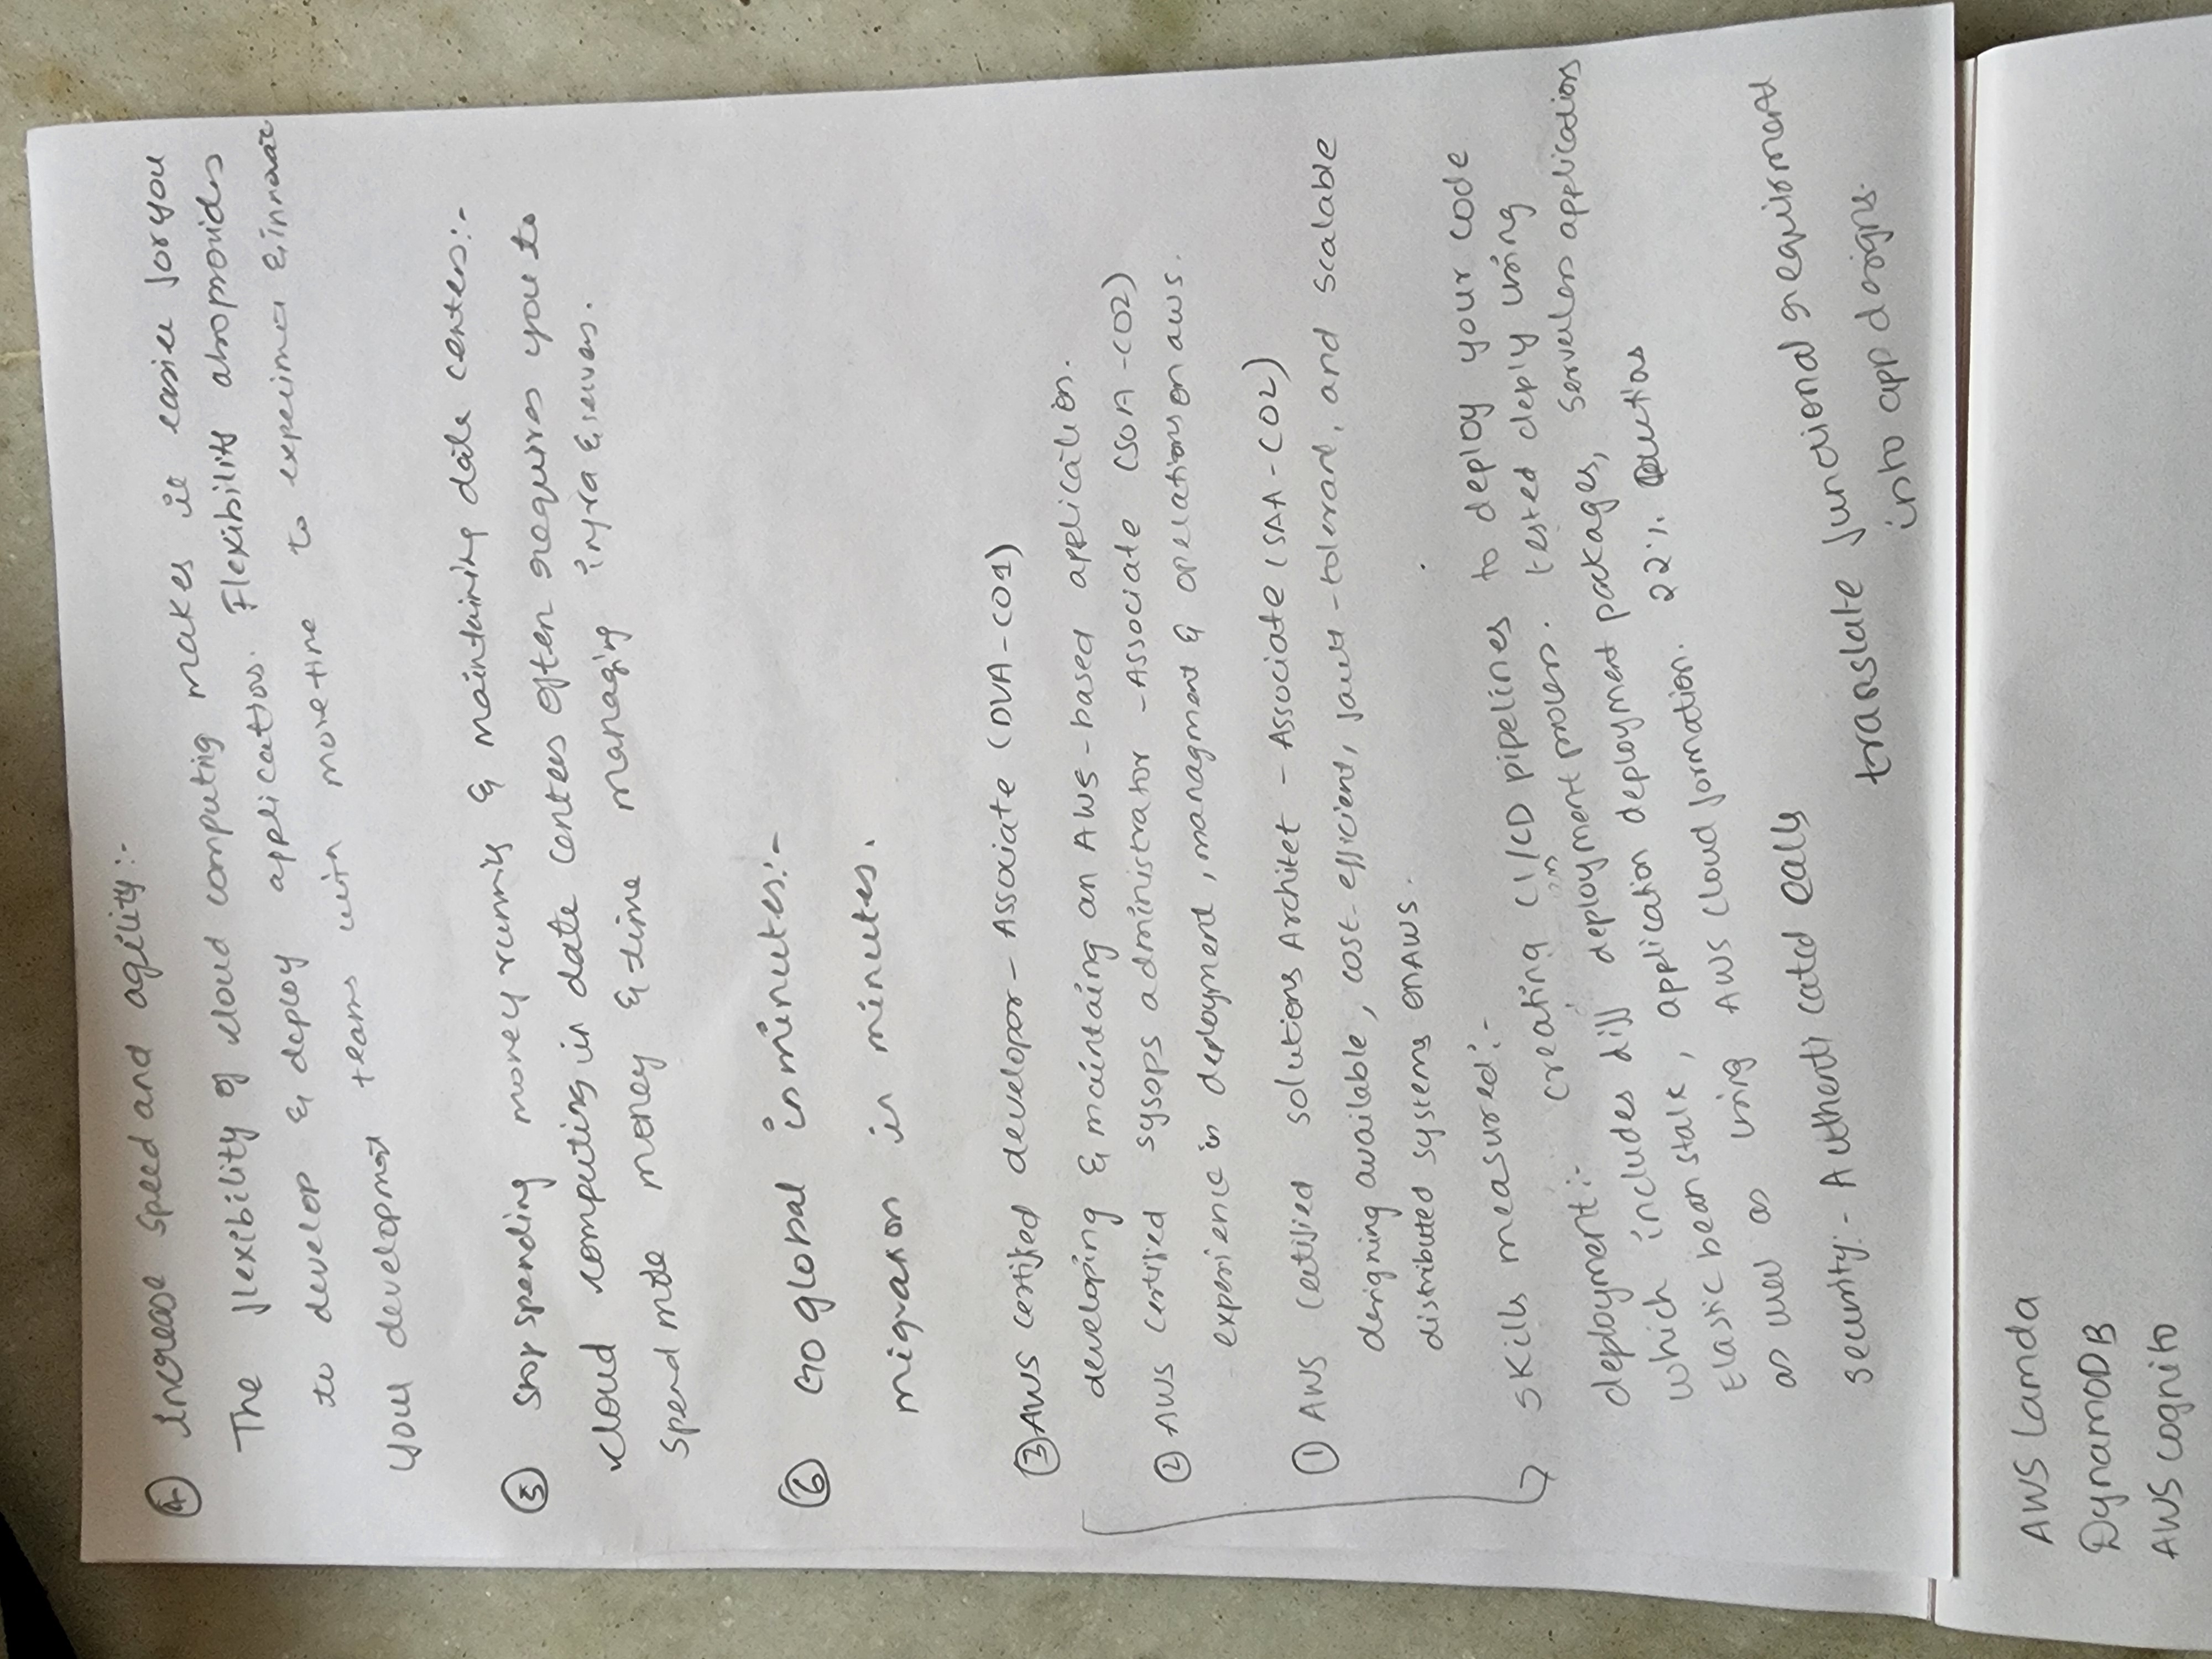 ④ Increase speed and agility:-
The flexibility of cloud computing makes it easier for you
to develop & deploy applications. Flexibility also provides
your development teams with more time to experiment & innovate
⑤ Stop spending money running & maintaining data centers:-
cloud computing in data centers often requires you to
spend more money & time managing infra & servers.
⑥ Go global in minutes:-
migration in minutes.
③ AWS certified developer - Associate (DVA-C01)
developing & maintaing an AWS-based application.
② AWS certified sysops administrator - Associate (SOA-C02)
experience in deployment, managment & operations on aws.
① AWS Certified solutions Architet - Associate (SAA-C02)
designing available, cost-efficient, fault-tolerant, and scalable
distributed systems on AWS.
Skills measured:-
deployment:- creating CI/CD pipelines to deploy your code
which includes diff deployment process. tested deply using
Elastic bean stalk, application deployment packages, Serverless applications
as well as using AWS cloud formation. 22%
security:- Authenticated calls
translate functional requirment
into app designs.
AWS Lamda
DynamoDB
AWS cognito